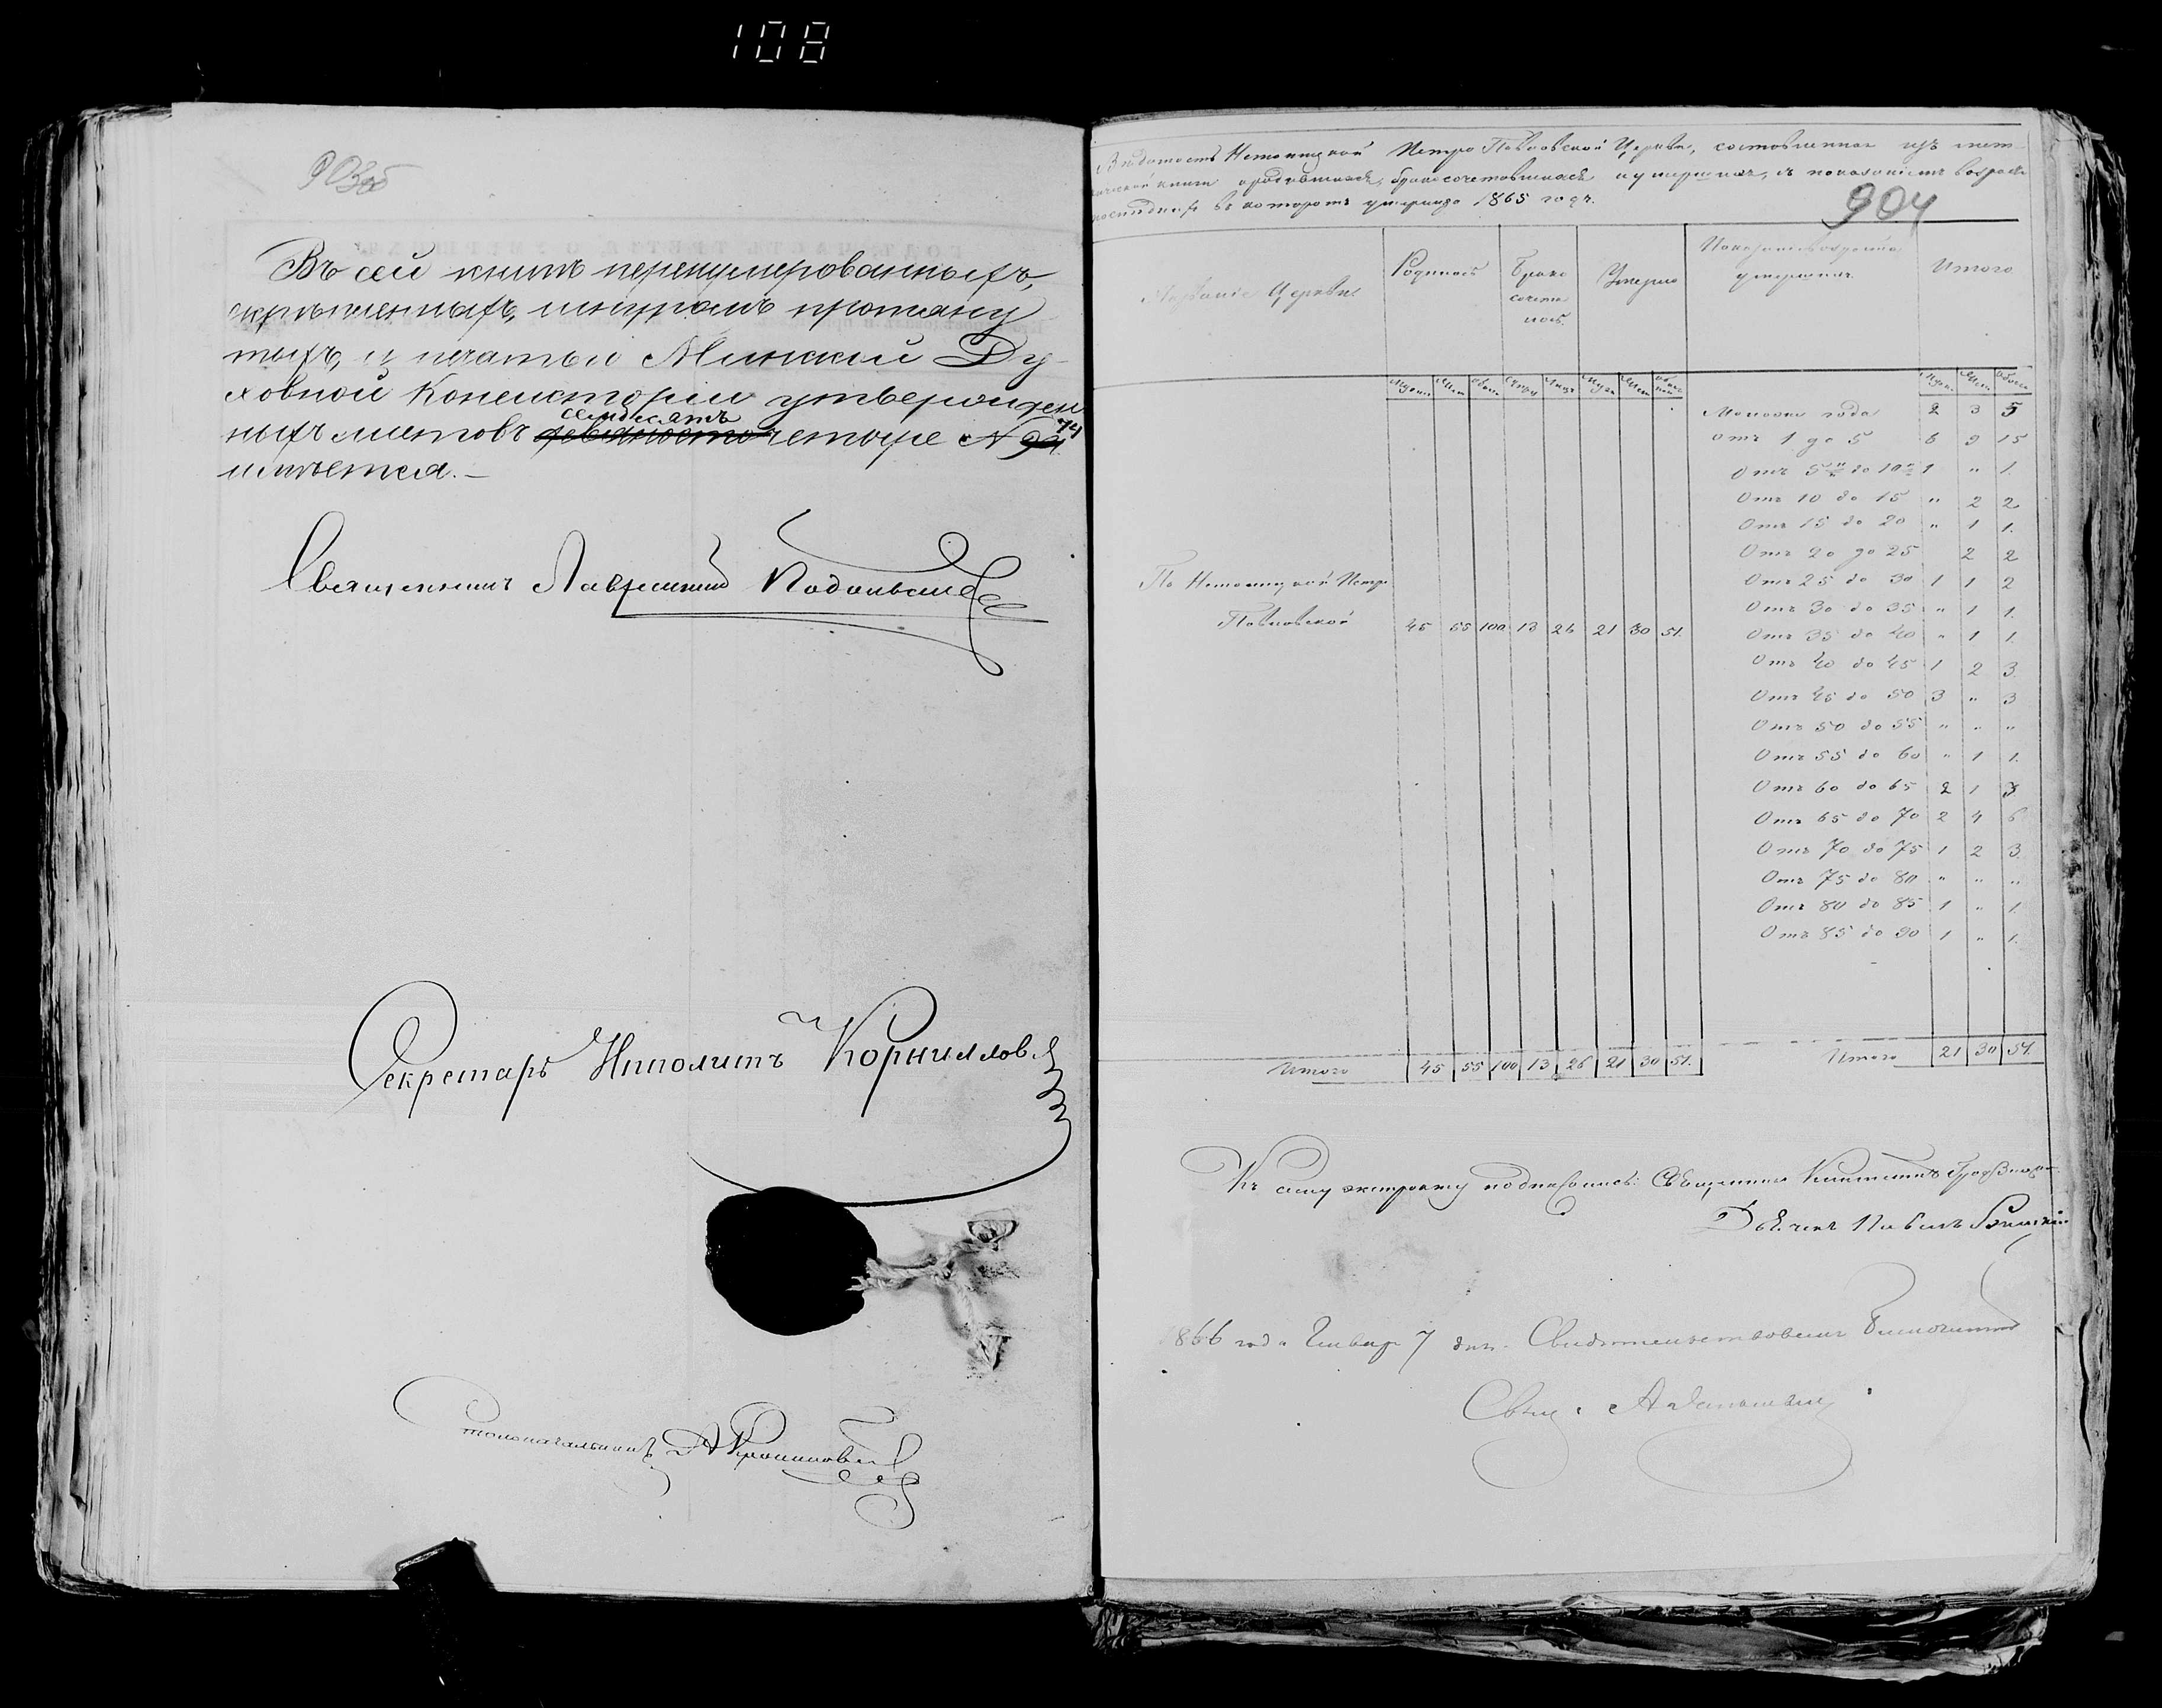 108
903об
Въ сей книгѣ перенумерованныхъ,
скрѣпленныхъ, шнуромъ протяну
тыхъ, и печатью Минской Ду-
ховной Консисторіи утвержден
семдесятъ
ныхъ листовъ девяносто четыре № 94 74
имѣется.—
Священникъ Лаврентій
Секретарь Ипполитъ Корниллов
Столоначальникъ А
904
Вѣдомость Петро Павловской Церкви, составленная изъ мет-
рической книги о родившихся, бракосочетавшихся и умершихъ, съ показаніемъ возраста
въ которомъ умерли 1865 годъ.
Названіе Церкви Родилось Брако сочета лось. Умерло Показаніе возраста умершихъ Итого
Муж. Жен. Обоих Муж. Жен. Обоего Муж. Жен. Обоего
Моложе года 2 3 5
Отъ 1 до 5 6 9 15
Отъ 5 до 10 1 " 1.
Отъ 10 до 15 " 2 2
Отъ 15 до 20 " 1 1.
Отъ 20 до 25 2 2
Отъ 25 до 30 1 1 2
Отъ 30 до 35 " 1 1.
По Петро
Павловской 45 55 100 13 26 21 30 51.
Отъ 35 до 40 " 1 1.
Отъ 40 до 45 1 2 3.
Отъ 45 до 50 3 " 3
Отъ 50 до 55 " " "
Отъ 55 до 60 " 1 1.
Отъ 60 до 65 2 1 3
Отъ 65 до 70 2 4 6
Отъ 70 до 75 1 2 3.
Отъ 75 до 80 " " "
Отъ 80 до 85 1 " 1.
Отъ 85 до 90 1 " 1.
Итого 45 55 100 13 26 21 30 51. Итого 21 30 51.
Къ сему экстракту подписались: Священникъ
Дьячекъ Павелъ
1866 года Января 7 дня. Свидѣтельствовалъ Благочинный
Свящ.